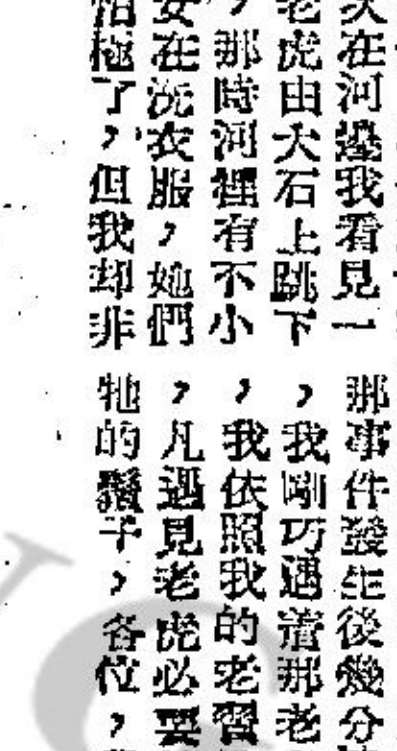 在河邊我看見一
老虎由大石上跳下
，那時河裡有不小
女在洗衣服，她們
怕極了，但我却非
那事件發生後幾分
，我剛巧遇着那老
，我依照我的老習
，凡遇見老虎必要
牠的鬚子，各位，